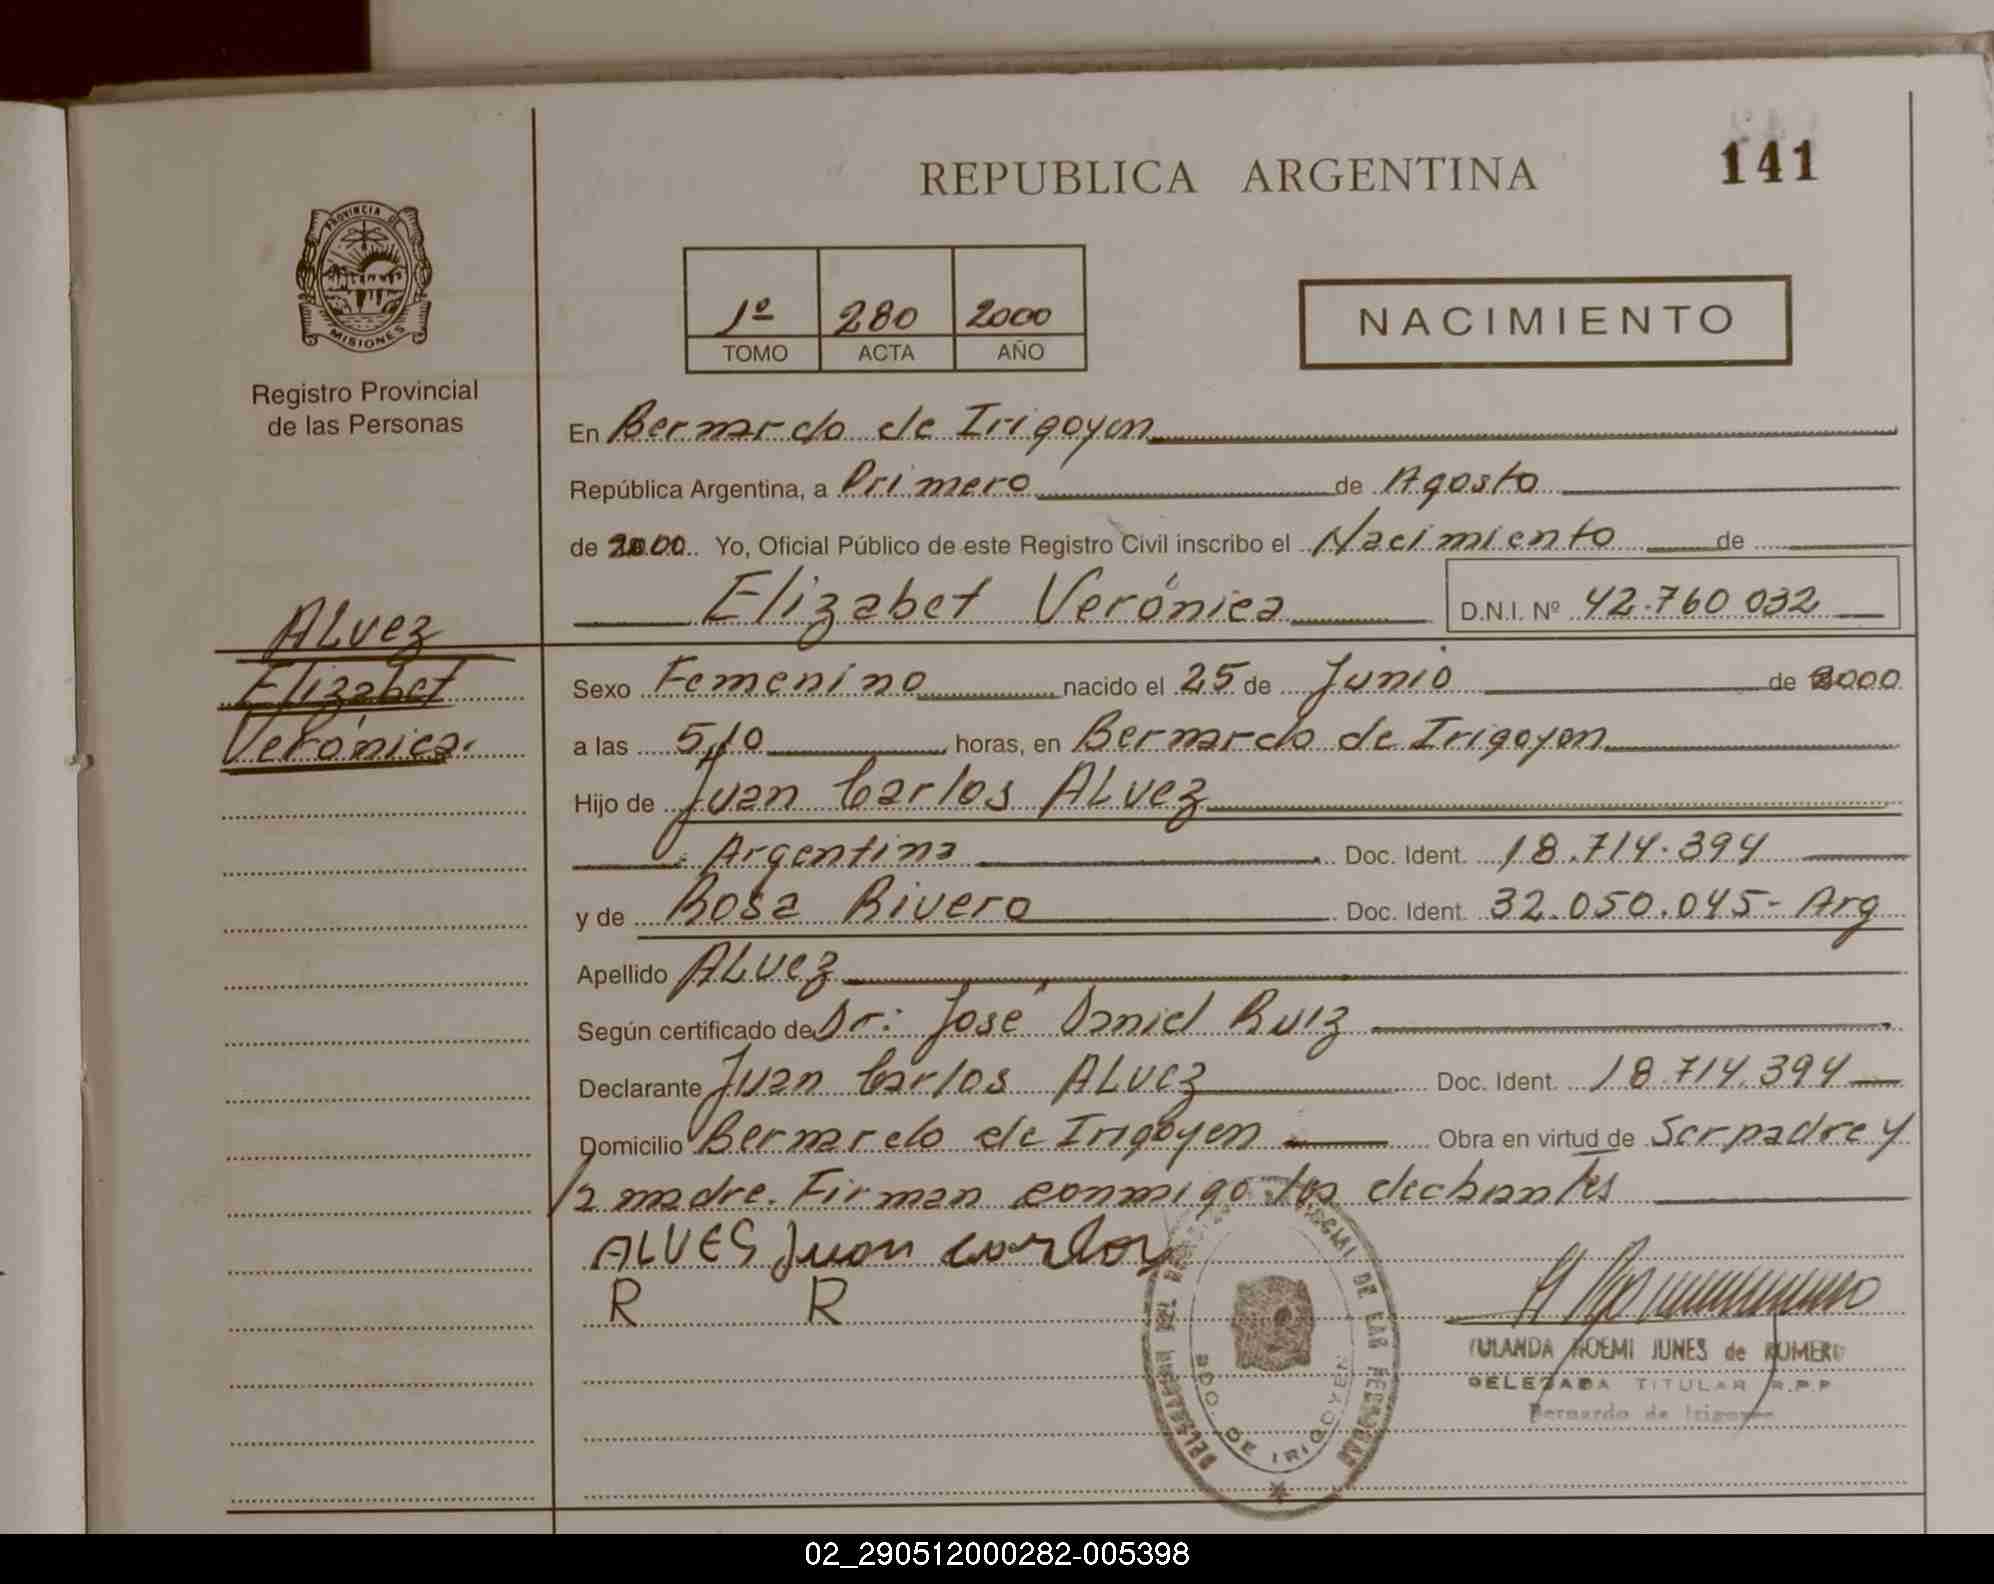 REPUBLICA ARGENTINA
141
PROVINCIA DE
MISIONES
Registro Provincial
de las Personas
1º 280 2000
TOMO ACTA AÑO
NACIMIENTO
En Bernardo de Irigoyen
República Argentina, a Primero de Agosto
de 2000 Yo, Oficial Público de este Registro Civil inscribo el Nacimiento de
Elizabet Verónica D.N.I. Nº 42.760 032
ALvez
Elizabet
Verónica.
Sexo Femenino nacido el 25 de Junio de 2000
a las 5,10 horas, en Bernardo de Irigoyen
Hijo de Juan Carlos ALvez
Argentina Doc. Ident. 18.714.394
y de Rosa Rivero Doc. Ident. 32.050.045- Arg
Apellido ALvez
Según certificado de Dr: José Daniel Ruiz
Declarante Juan Carlos ALvez Doc. Ident. 18.714.394
Domicilio Bernardo de Irigoyen Obra en virtud de Ser padre y
la madre. Firman conmigo los declarantes
ALVES Juan carlos
R R
DELEGACION DEL REGISTRO PROVINCIAL DE LAS PERSONAS
BDO. DE IRIGOYEN
YULANDA NOEMI JUNES de ROMERO
DELEGADA TITULAR R.P.P
Bernardo de Irigoyen
02_290512000282-005398